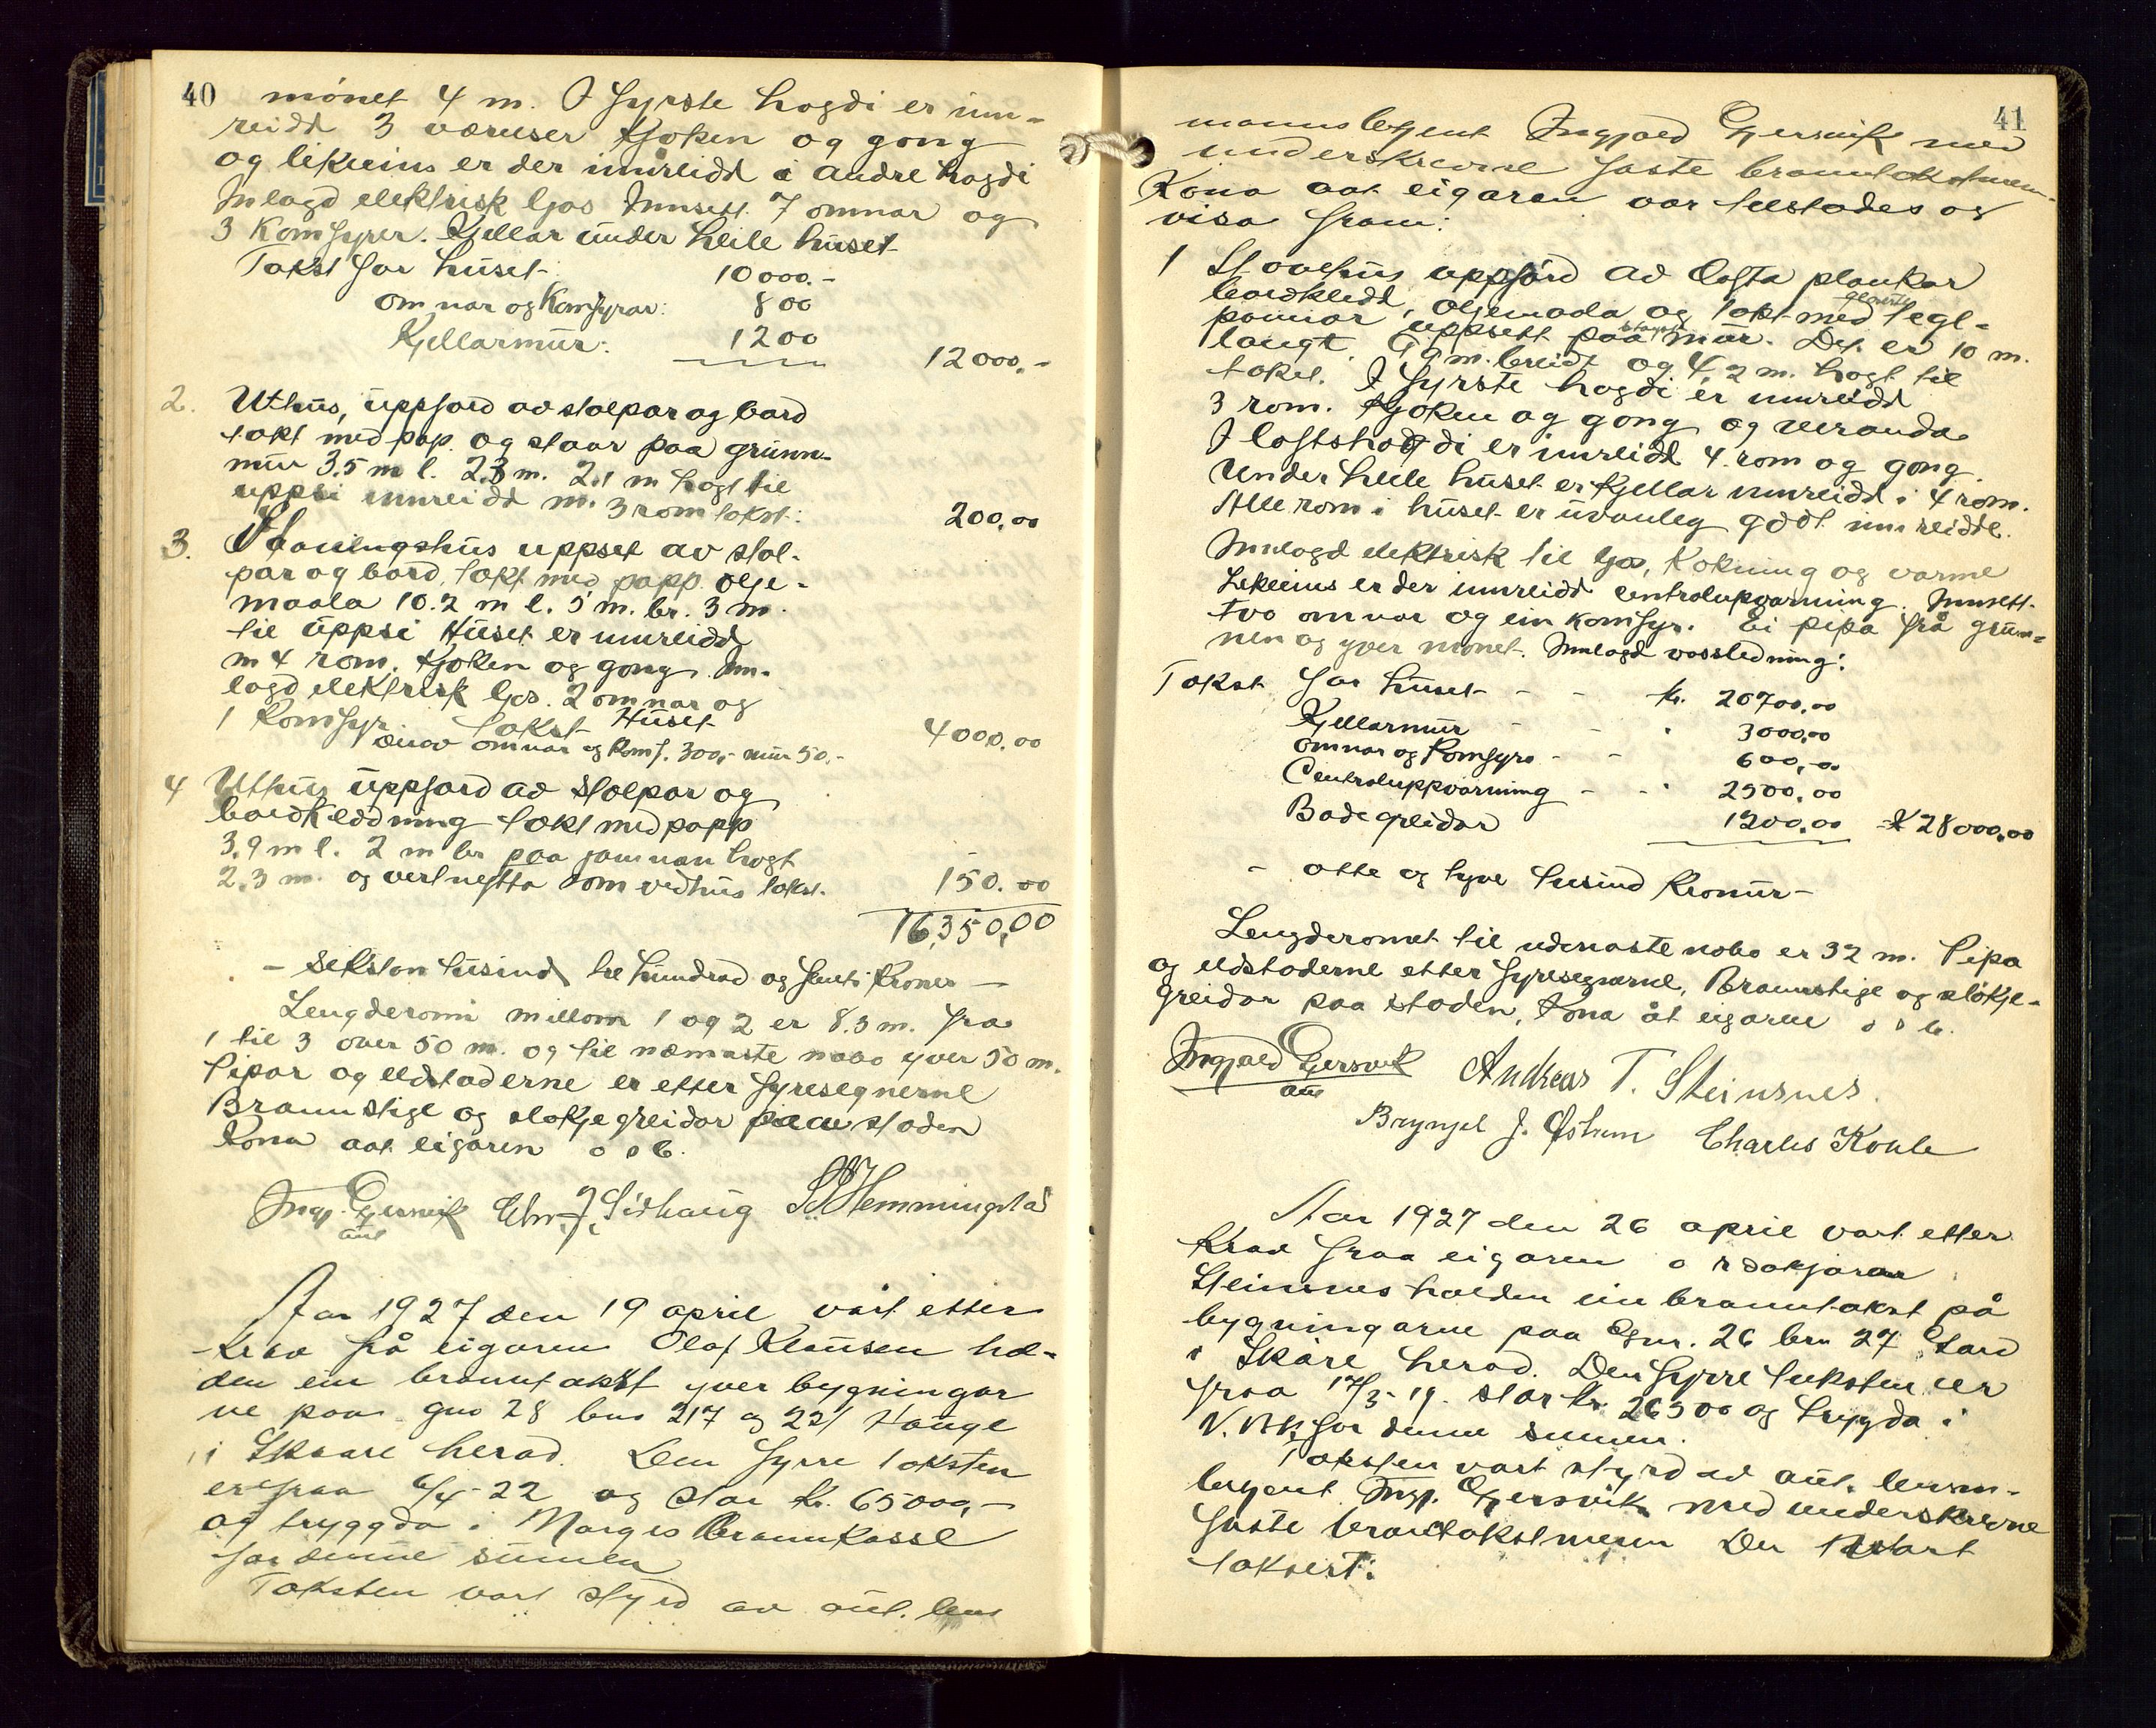 40
mönet 4 m. I fyrste högdi er inn-
reidd 3 værelser kjöken og gong
og likeins er der innreidd i andre högdi
Inlagd elektrisk ljos Innsett 7 omnar og
3 Komfyrer. Kjellar under heile huset
Takst for huset: 10000.-
omnar og Komfyrar: 800
Kjellarmur: 1200 12000,-
2. Uthus, uppförd av stolpar og bord
tekt med pap. og staar paa grunn-
mur 3.5 m l. 2.3 m. 2.1 m högt til
uppsi innreidd m. 3 rom takst: 200,00
3. Vaaningshus uppset av stol-
par og bord, tekt med papp olje-
maala 10.2 m l. 5 m. br. 3 m.
til uppsi Huset er innreidd
m 4 rom. kjöken og gong. inn-
lagd elektrisk ljos. 2 omnar og
1 Komfyr. takst Huset 4000,00
derav omnar og komf. 300,- mur 50.-
4 Uthus uppförd av stolpar og
bordkledning tekt med papp
3.9 m l. 2 m br paa jamnan högt
2.3 m. og vert nytta som vedhus takst. 150.00
16,350,00
- sekston tusind tre hundrad og femti Kroner -
Lengderomi millom 1 og 2 er 8.3 m. fra
1 til 3 over 50 m. og til næmaste nabo yver 50 m.
Pipar og eldstaderne er etter fyresegnerne
Brannstige og slökjegreidor paa staden
Kona aat eigaren o s b.
Ingj. Gjersvik Chr. J. Sørhaug S Hemmingstad
aut
Aar 1927 den 19 april vart etter
krav frå eigaren Olaf Klausen hal-
den ein branntakst yver bygningar
ne paa gno 28 bno 217 og 221 Hauge
i Skaare herad. Den fyrre taksten
er fraa 6/4-22 og star kr. 65000,-
og tryggda i Norges Brannkasse
for denne sumen
Taksten vart styrd av aut. lens
41
mannsbetjent Ingjald Gjersvik med
underskrevne faste branntakstmenn.
Kona aat eigaren var tilstades og
visa fram:
1 Stovehus uppförd av lafta plankar
bordkledd, oljemåla og tekt med glaserte tegl-
pannor uppsett paa støypt mur. Det er 10 m.
langt. 9.9 m. breidt og 4.2 m. högt til
taket. I fyrste högdi er innreidd
3 rom. kjöken og gong og veranda
I loftshögdi er innreidd 4. rom og gong
Under heile huset er kjellar innreidd i 4 rom.
Alle rom i huset er uvanleg godt innreidde.
Innlagd elektrisk til ljos, kokning og varme
Likeins er der innreidd centralupvarming. Innsett
tvo omnar og ein komfyr. Ei pipa frå grun-
nen og yver mönet. Innlagd vassledning:
Takst for huset - - kr. 20700,00
Kjellarmur - " 3000,00
omnar og Komfyro - - 600,00
Centraluppvarming - - " 2500,00
Badegreidor 1200,00 Kr 28000,00
- otte og tyve tusind Kronur -
Lengderomet til udmaste nabo er 32 m. Pipa
og eldstaderne etter fyresegnarne. Brannstige og slökje-
greidor paa staden, Kona åt eigarne o s b.
Ingjald Gjersvik Andreas T. Steinsnes.
aut
Bryngel J. Østrem Charles Kohle
Aar 1927 den 26 april vart etter
krav fraa eigaren
Steinsnes halden ein branntakst på
bygningarne paa Gnr. 26 brn 27 Gard
i Skåre herad. Den fyrre taksten er
fraa 17/3-19. star kr. 26500 og trygda i
N. Bk for denne sumen.
Taksten vart styrd av aut. lensm-
betjent Ingj. Gjersvik med underskrevne
faste branntakstmenn Der vart
taksert: